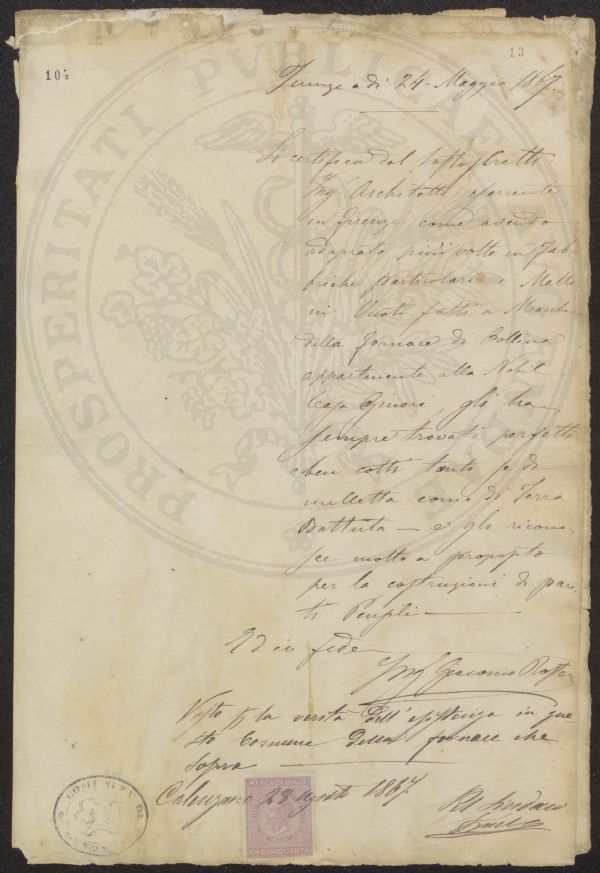 104
13
Firenze a dì 24 Maggio 1867.
Si certifica dal sottoscritto
Ing. Architetto esercente
in Firenze come avendo
adoprato più volte in Fab-
briche particolari i Matto
ni Vuoti fatti a Macchina
della Fornace di Collina
appartenente alla Nobil
Casa Ginori, gli ha
sempre trovati perfetti
e ben cotti tanto se di
melletta come di Terra
Battuta — e gli ricono-
sce molto a proposito
per la costruzioni di pare,
ti
Ed in fede
Ing. Giacomo
Visto p la verità dell'esistenza in que
sto Comune della fornace che
sopra
Calenzano 23 agosto 1867.
Il Sindaco
MARCA DA BOLLO
Ct CINQUANTA
PROSPERITATI PVBLICAE